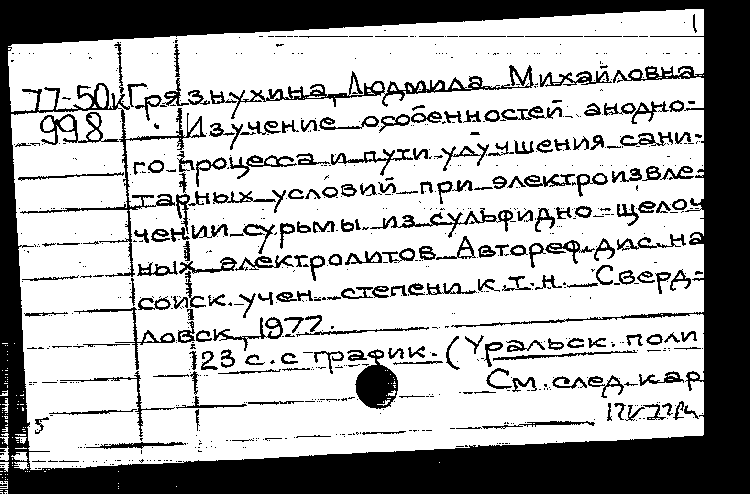 1
77-50к Грязнухина, Людмила Михайловна
998 Изучение особенностей анодно-
го процесса и пути улучшения сани-
тарных условий при электроизвле-
чении сурьмы из сульфидно-щелоч
ных электролитов. Автореф. дис. на
соиск. учен. степени к.т.н. Сверд-
ловск, 1977.
23 с. с график. (Уральск. поли
См. след. кар
5